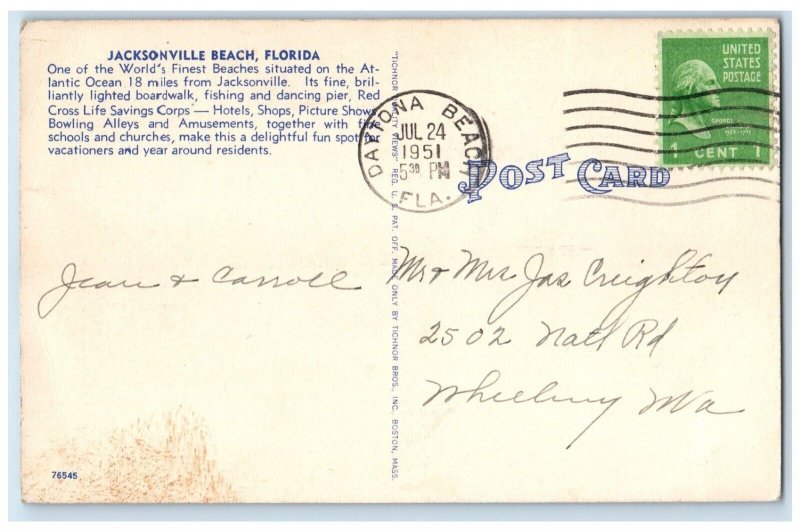 JACKSONVILLE BEACH, FLORIDA
One of the World's Finest Beaches situated on the At-
lantic Ocean 18 miles from Jacksonville. Its fine, bril-
liantly lighted boardwalk, fishing and dancing pier, Red
Cross Life Savings Corps — Hotels, Shops, Picture Show
Bowling Alleys and Amusements, together with
schools and churches, make this a delightful fun spot
vacationers and year around residents.
Jean & Carroll
76545
"TICHNOR QUALITY VIEWS" REG. U. S. PAT. OFF. MADE ONLY BY TICHNOR BROS., INC., BOSTON, MASS.
DAYTONA BEACH
JUL 24
1951
5 30 PM
FLA.
POST CARD
UNITED
STATES
POSTAGE
1 CENT 1
Mr & Mrs Jas Creighton
2502 Natl Rd
Wheeling W Va